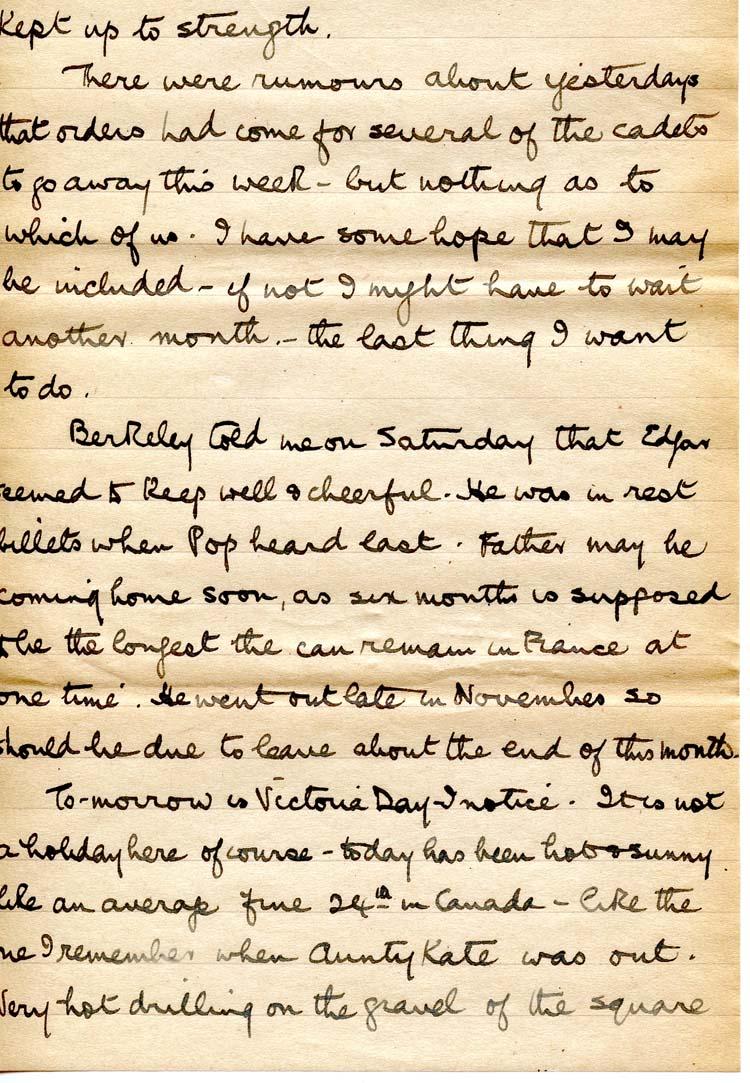 Kept up to strength.
There were rumours about yesterday
that orders had come for several of the cadets
to go away this week - but nothing as to
which of us. I have some hope that I may
be included - if not I might have to wait
another month. - the last thing I want
to do.
Berkeley told me on Saturday that Edgar
seemed to keep well & cheerful. He was in rest
billets when Pop heard last. Father may be
coming home soon, as six months is supposed
to be the longest the can remain in France at
one time. He went out late in November so
should be due to leave about the end of this month.
To-morrow is Victoria Day - I notice. It is not
a holiday here of course - today has been hot & sunny
like an average fine 24th in Canada - like the
one I remember when Aunty Kate was out.
Very hot drilling on the gravel of the square